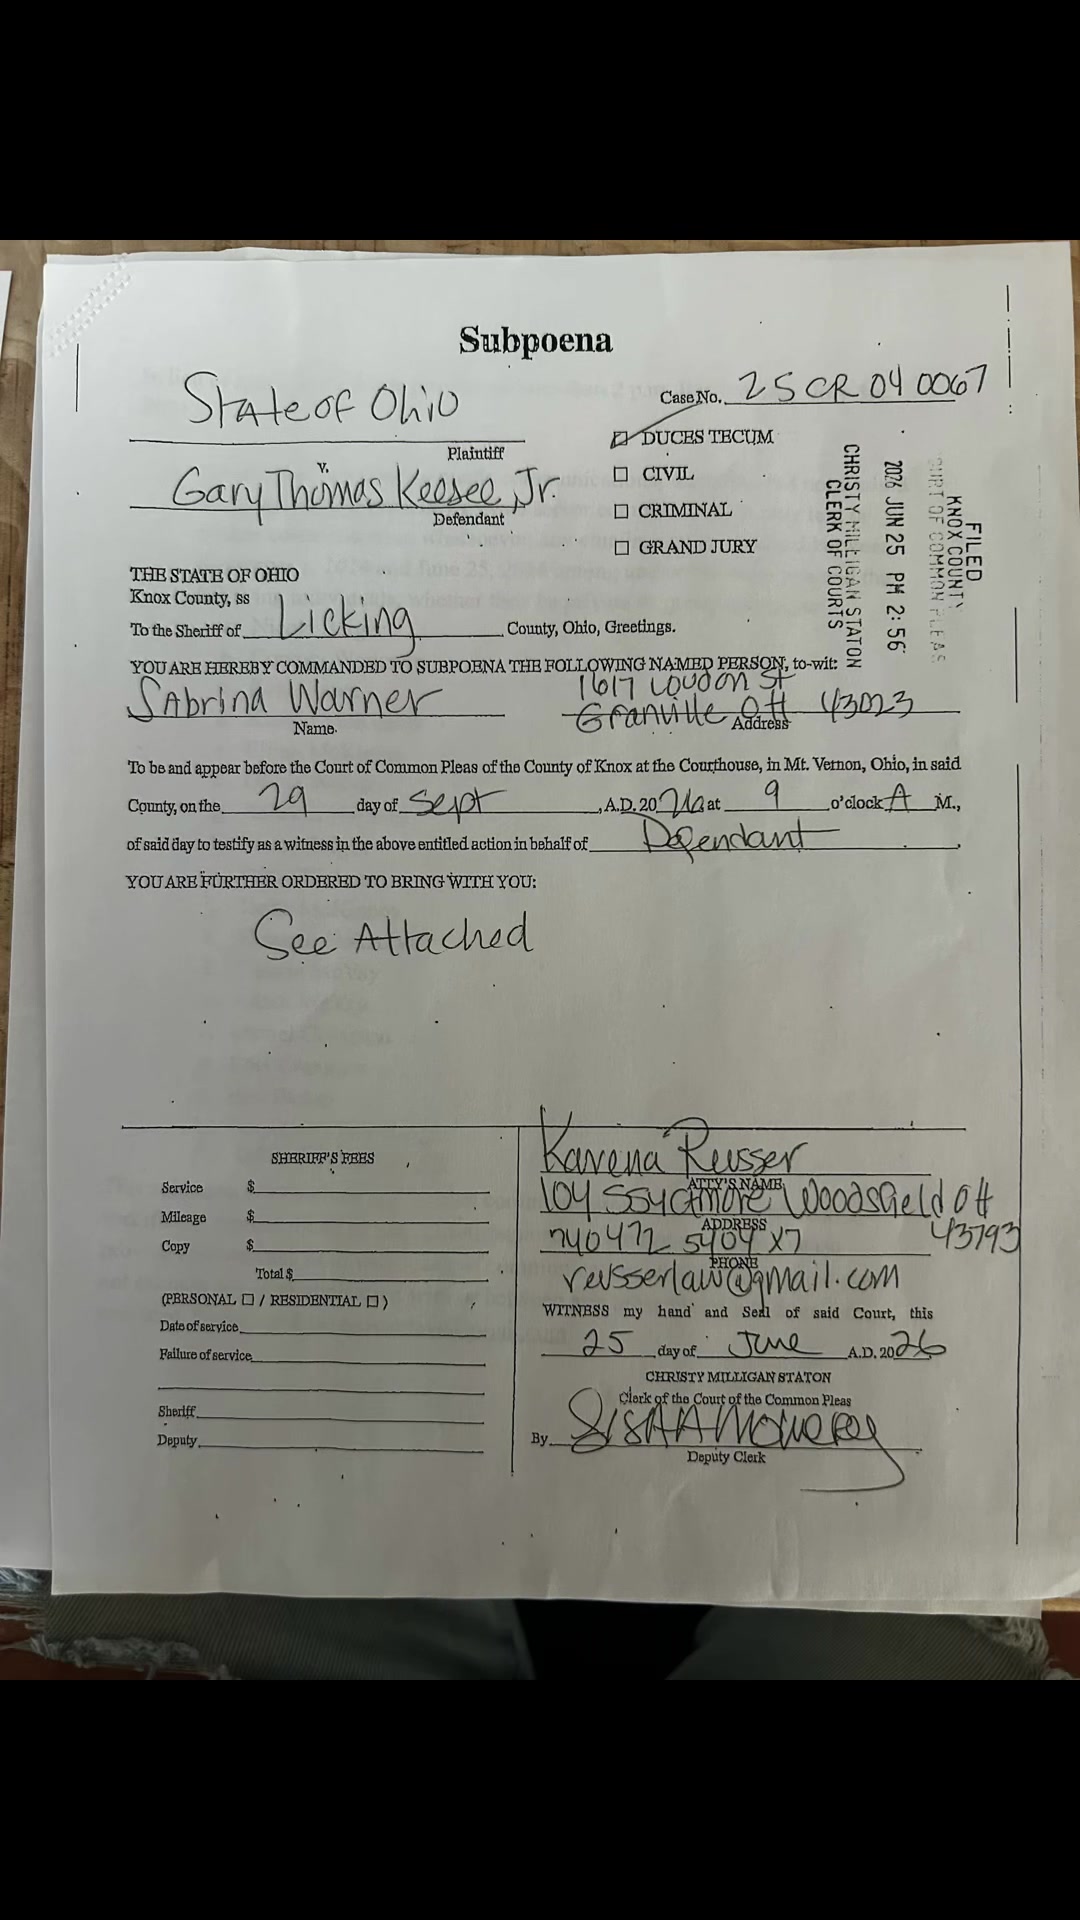 Subpoena
State of Ohio
Case No. 25 CR 04 0067
Plaintiff
DUCES TECUM
v.
CIVIL
Gary Thomas Keesee, Jr.
Defendant
CRIMINAL
GRAND JURY
FILED
KNOX COUNTY
COURT OF COMMON PLEAS
2026 JUN 25 PM 2:56
CHRISTY MILLIGAN STATON
CLERK OF COURTS
THE STATE OF OHIO
Knox County, ss
To the Sheriff of Licking County, Ohio, Greetings.
YOU ARE HEREBY COMMANDED TO SUBPOENA THE FOLLOWING NAMED PERSON, to-wit:
Sabrina Warner 1617 Loudon St
Granville OH 43023
Name Address
To be and appear before the Court of Common Pleas of the County of Knox at the Courthouse, in Mt. Vernon, Ohio, in said
County, on the 29 day of Sept, A.D. 2026 at 9 o'clock A M.,
of said day to testify as a witness in the above entitled action in behalf of Defendant
YOU ARE FURTHER ORDERED TO BRING WITH YOU:
See Attached
SHERIFF'S FEES
Service $
Mileage $
Copy $
Total $
(PERSONAL ☐ / RESIDENTIAL ☐)
Date of service
Failure of service
Sheriff
Deputy
Karena Reusser
ATTY'S NAME
104 S Sycamore Woodsfield OH
43793
ADDRESS
740 472 5404 x7
PHONE
reusserlaw@gmail.com
WITNESS my hand and Seal of said Court, this
25 day of June A.D. 2026
CHRISTY MILLIGAN STATON
Clerk of the Court of the Common Pleas
By
Deputy Clerk